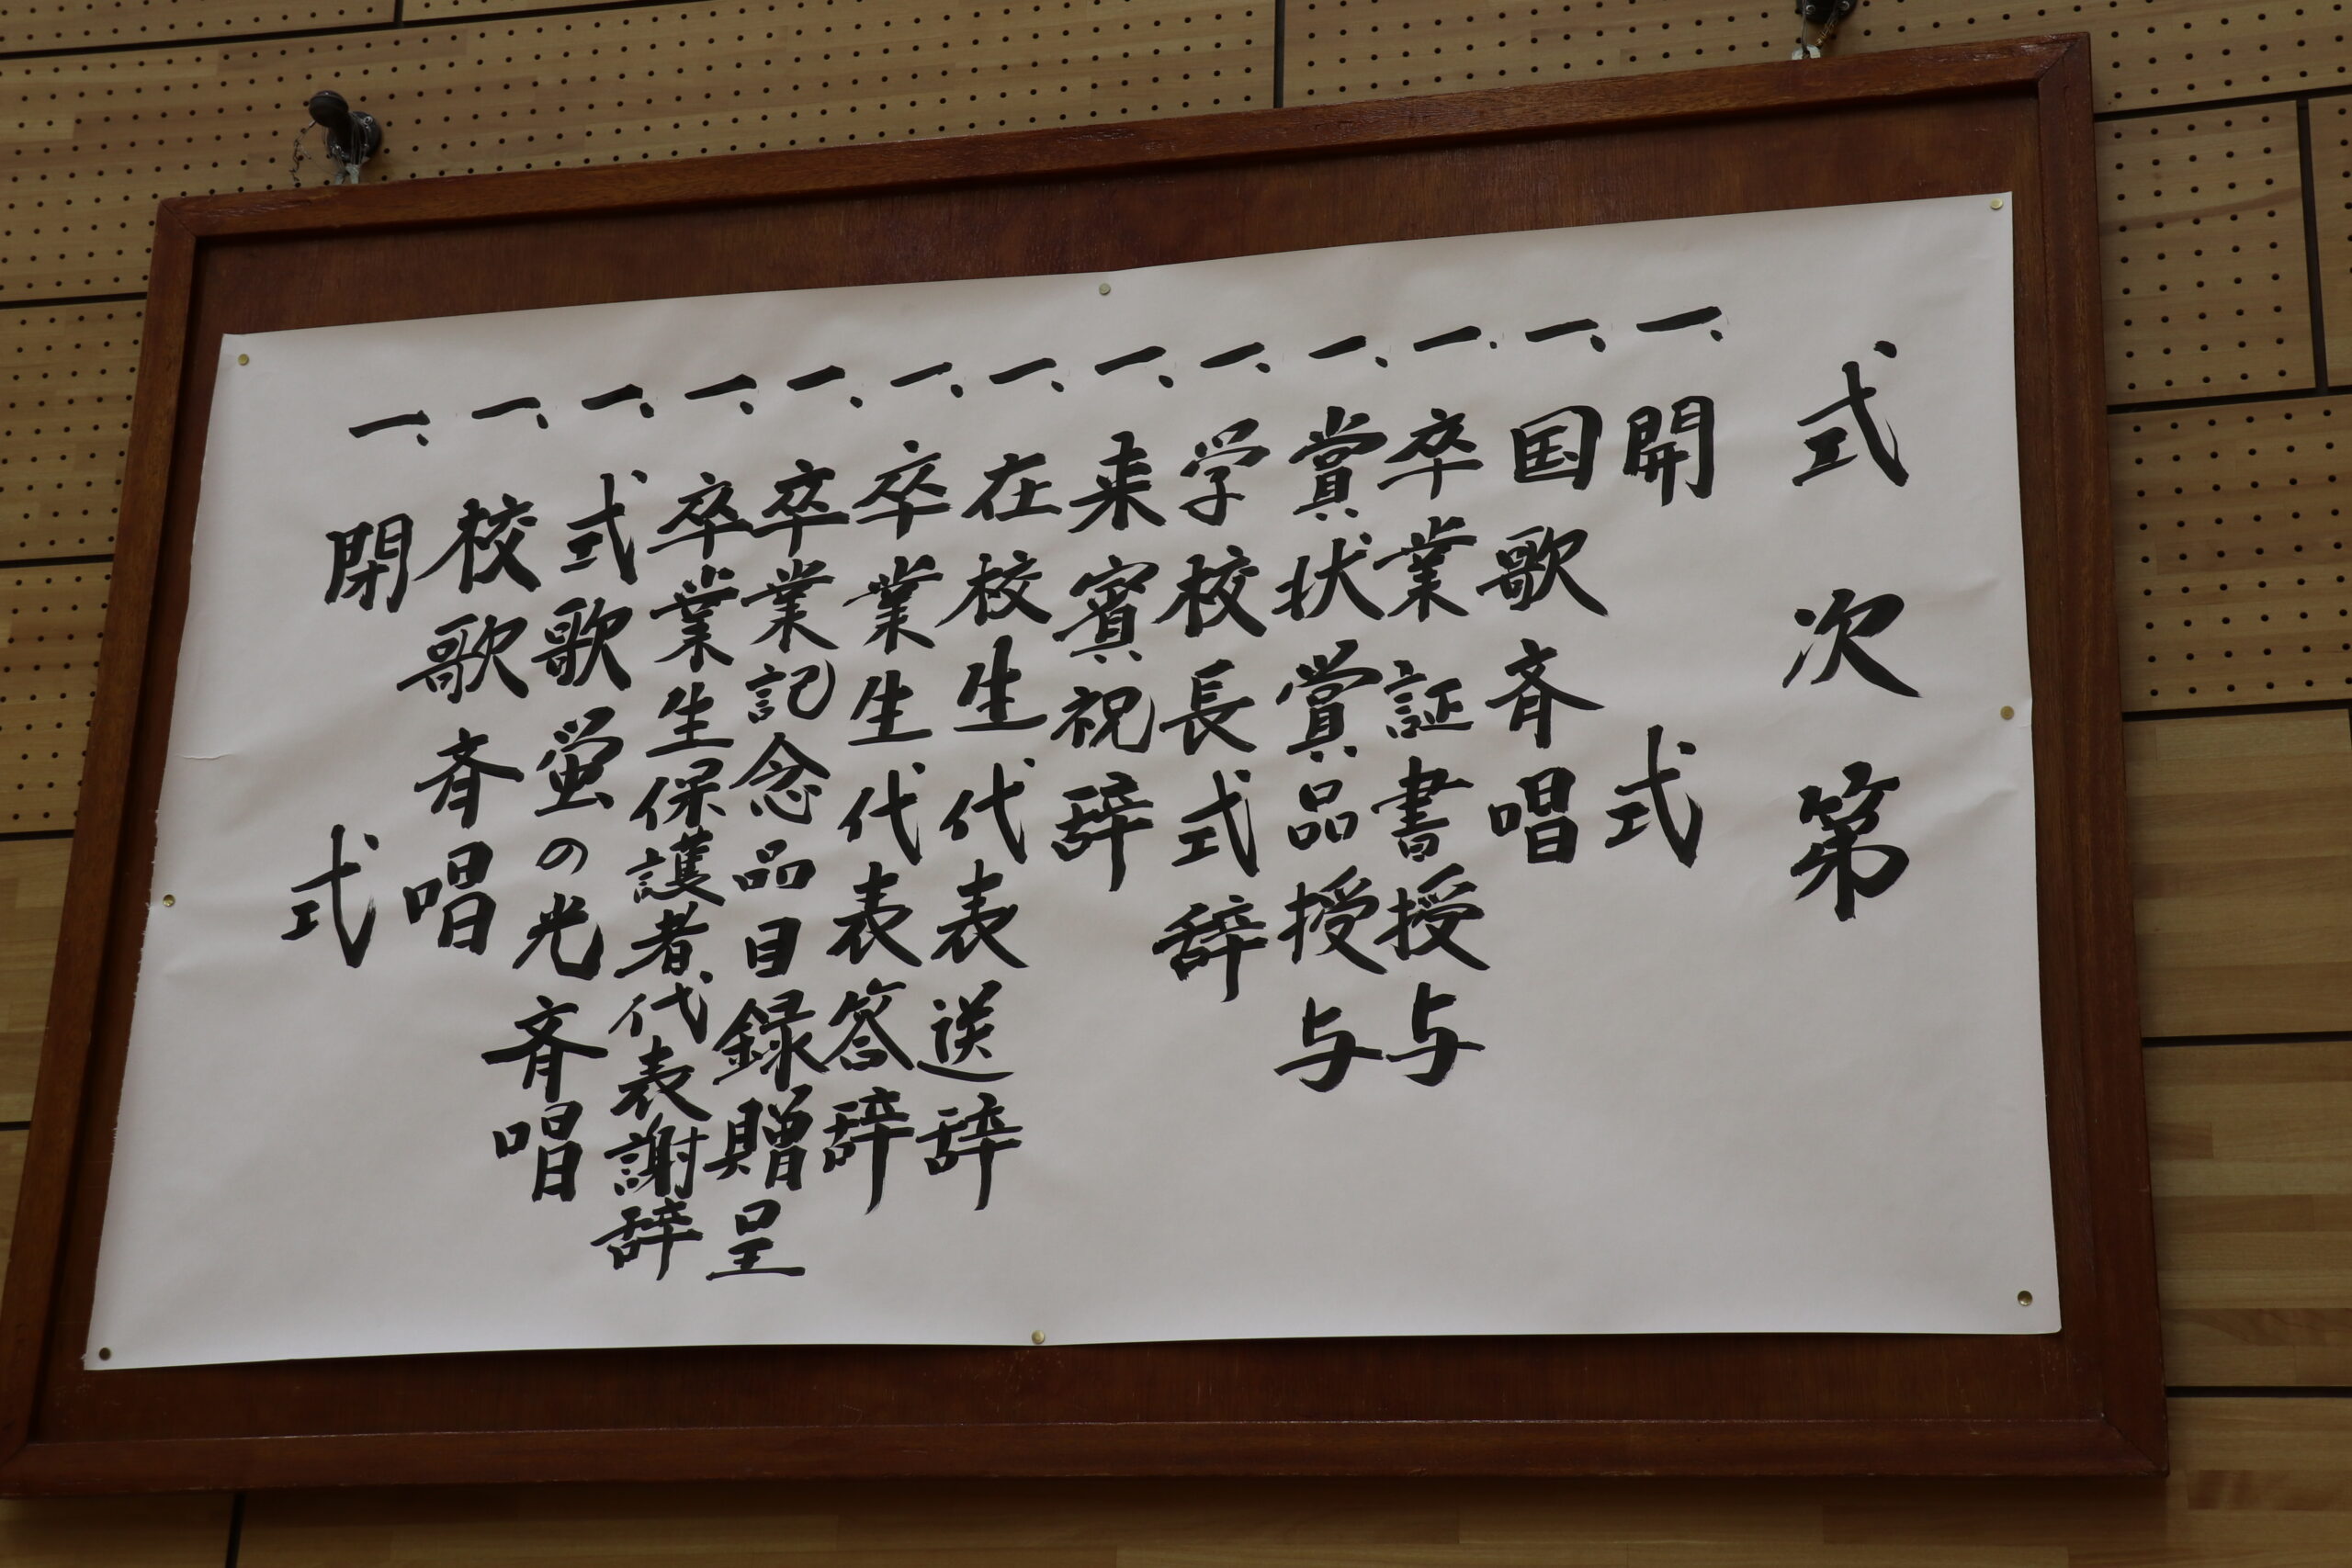 式次第
一、開式
一、国歌斉唱
一、卒業証書授与
一、賞状賞品授与
一、学校長式辞
一、来賓祝辞
一、在校生代表送辞
一、卒業生代表答辞
一、卒業記念品目録贈呈
一、卒業生保護者代表謝辞
一、式歌蛍の光斉唱
一、校歌斉唱
一、閉式